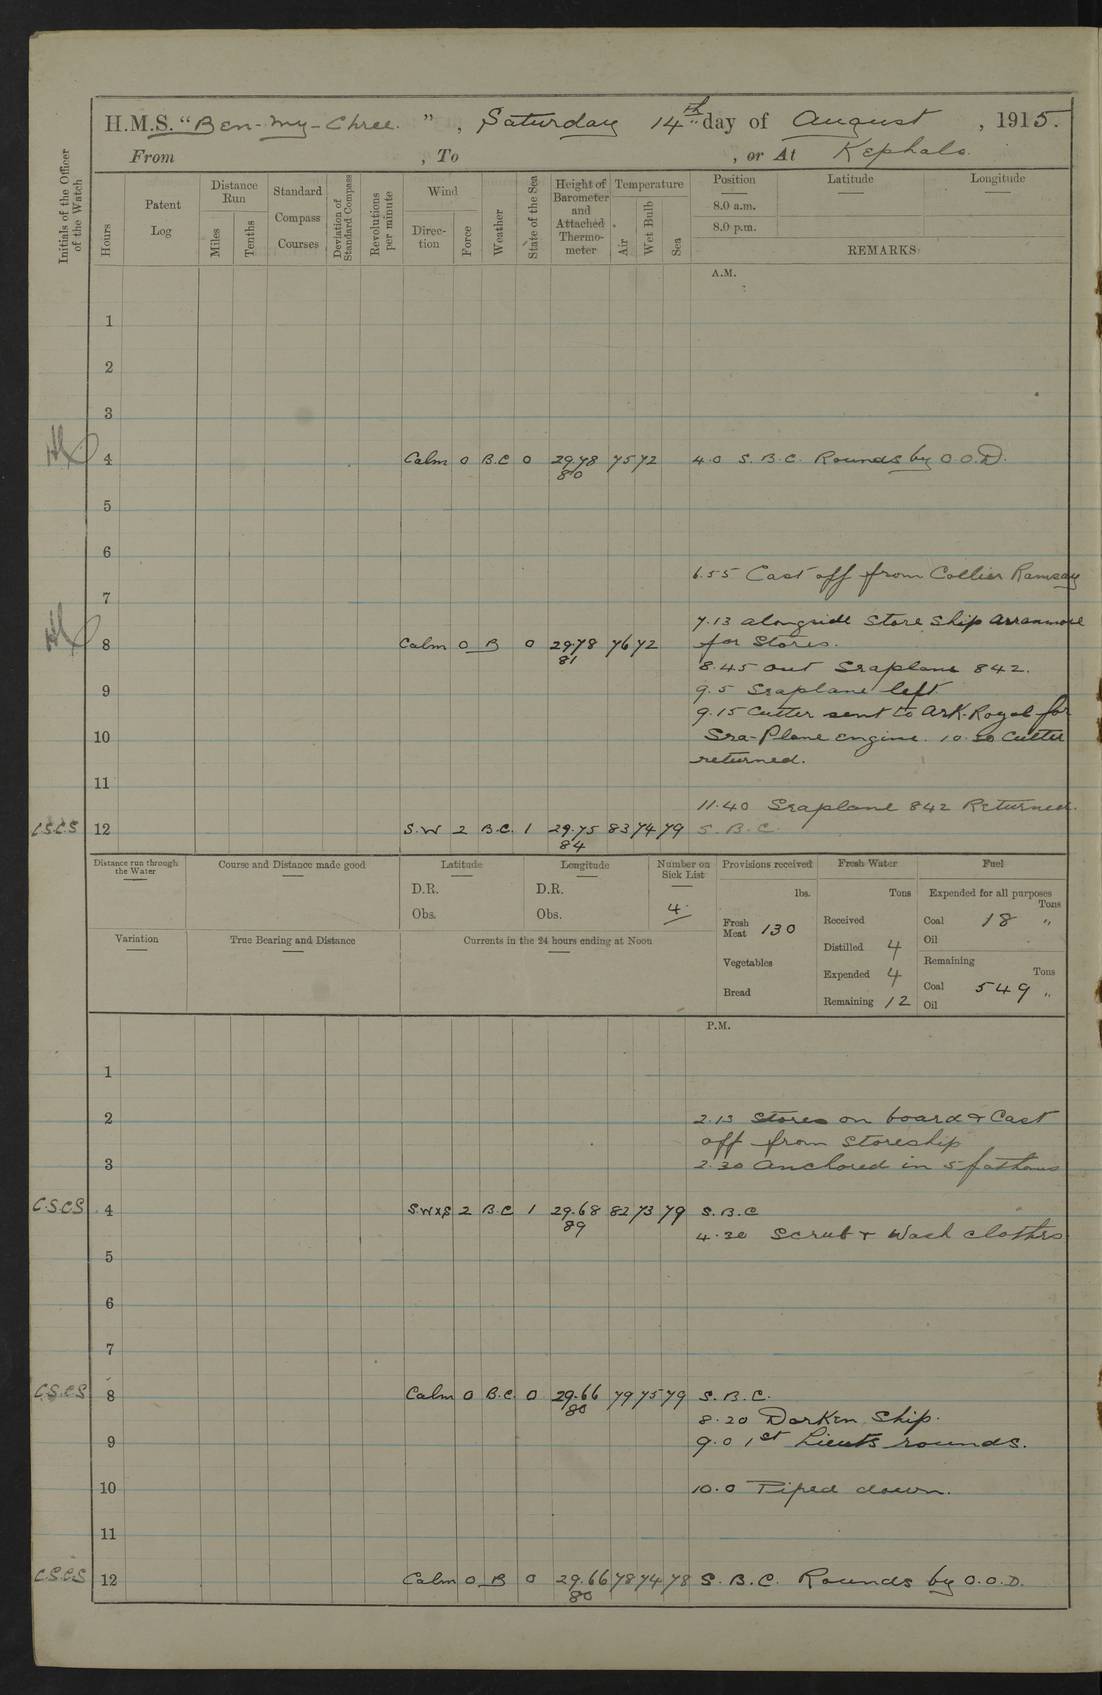 H.M.S. "Ben-my-Chree.", Saturday 14th day of August, 1915.
From , To , or At Kephalo.
Initials of the Officer of the Watch
Hours
Patent Log
Distance Run
Miles
Tenths
Standard Compass Courses
Deviation of Standard Compass
Revolutions per minute
Wind
Direction
Force
Weather
State of the Sea
Height of Barometer and Attached Thermometer
Temperature
Air
Wet Bulb
Sea
Position Latitude Longitude
8.0 a.m.
8.0 p.m.
REMARKS
A.M.
1
2
3
4 Calm 0 B.C 0 29.78 75 72 4.0 S.B.C. Rounds by O.O.D.
80
5
6
6.55 Cast off from Collier Ramsay
7
7.13 alongside Store Ship Arranmore
8 Calm 0 B 0 29.78 76 72 for Stores.
81
8.45 out Seaplane 842.
9 9.5 Seaplane left
9.15 Cutter sent to Ark-Royal for
10 Sea-Plane engine. 10.30 Cutter
returned.
11
11.40 Seaplane 842 Returned.
C.S.C.S 12 S.W 2 B.C. 1 29.75 83 74 79 S.B.C.
84
Distance run through the Water
Course and Distance made good
Latitude
D.R.
Obs.
Longitude
D.R.
Obs.
Number on Sick List
4
Provisions received
lbs.
Fresh Meat 130
Vegetables
Bread
Fresh Water
Tons
Received
Distilled 4
Expended 4
Remaining 12
Fuel
Expended for all purposes
Tons
Coal 18 "
Oil
Remaining
Tons
Coal 549 "
Oil
Variation
True Bearing and Distance
Currents in the 24 hours ending at Noon
P.M.
1
2 2.13 Stores on board & Cast
off from Storeship
3 2.30 Anchored in 5 fathoms
C.S.C.S 4 S.WxS 2 B.C 1 29.68 82 73 79 S.B.C
89
4.20 Scrub & Wash clothes
5
6
7
C.S.C.S 8 Calm 0 B.C. 0 29.66 79 75 79 S.B.C.
80
8.20 Darken Ship.
9 9.0 1st Lieuts rounds.
10 10.0 Piped down.
11
C.S.C.S 12 Calm 0 B 0 29.66 78 74 78 S.B.C. Rounds by O.O.D.
80